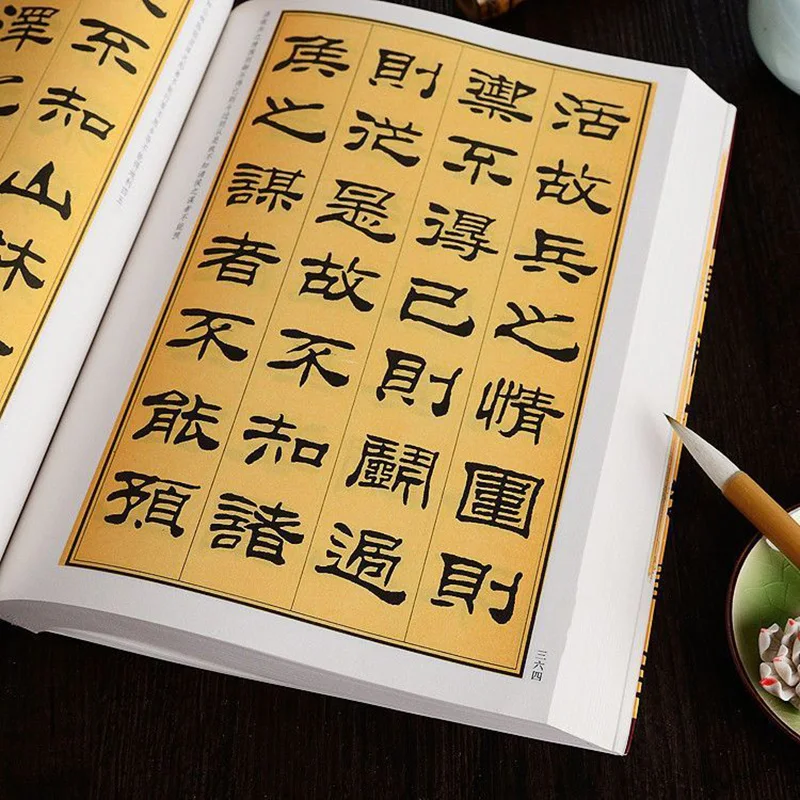 活故兵之情圍則
禦不得已則鬭過
則從是故不知諸
侯之謀者不能預
三六四
不知山林
澤之